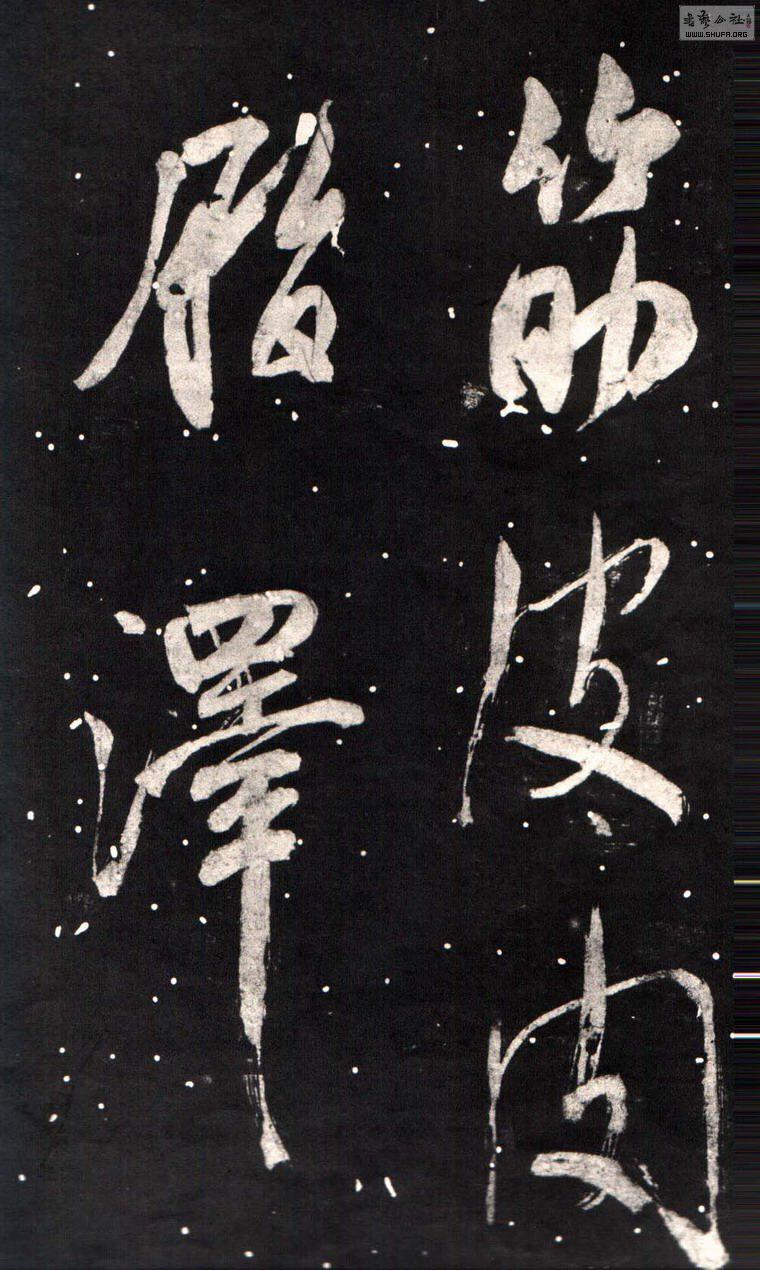 筋皮肉
脂澤
书艺公社
WWW.SHUFA.ORG